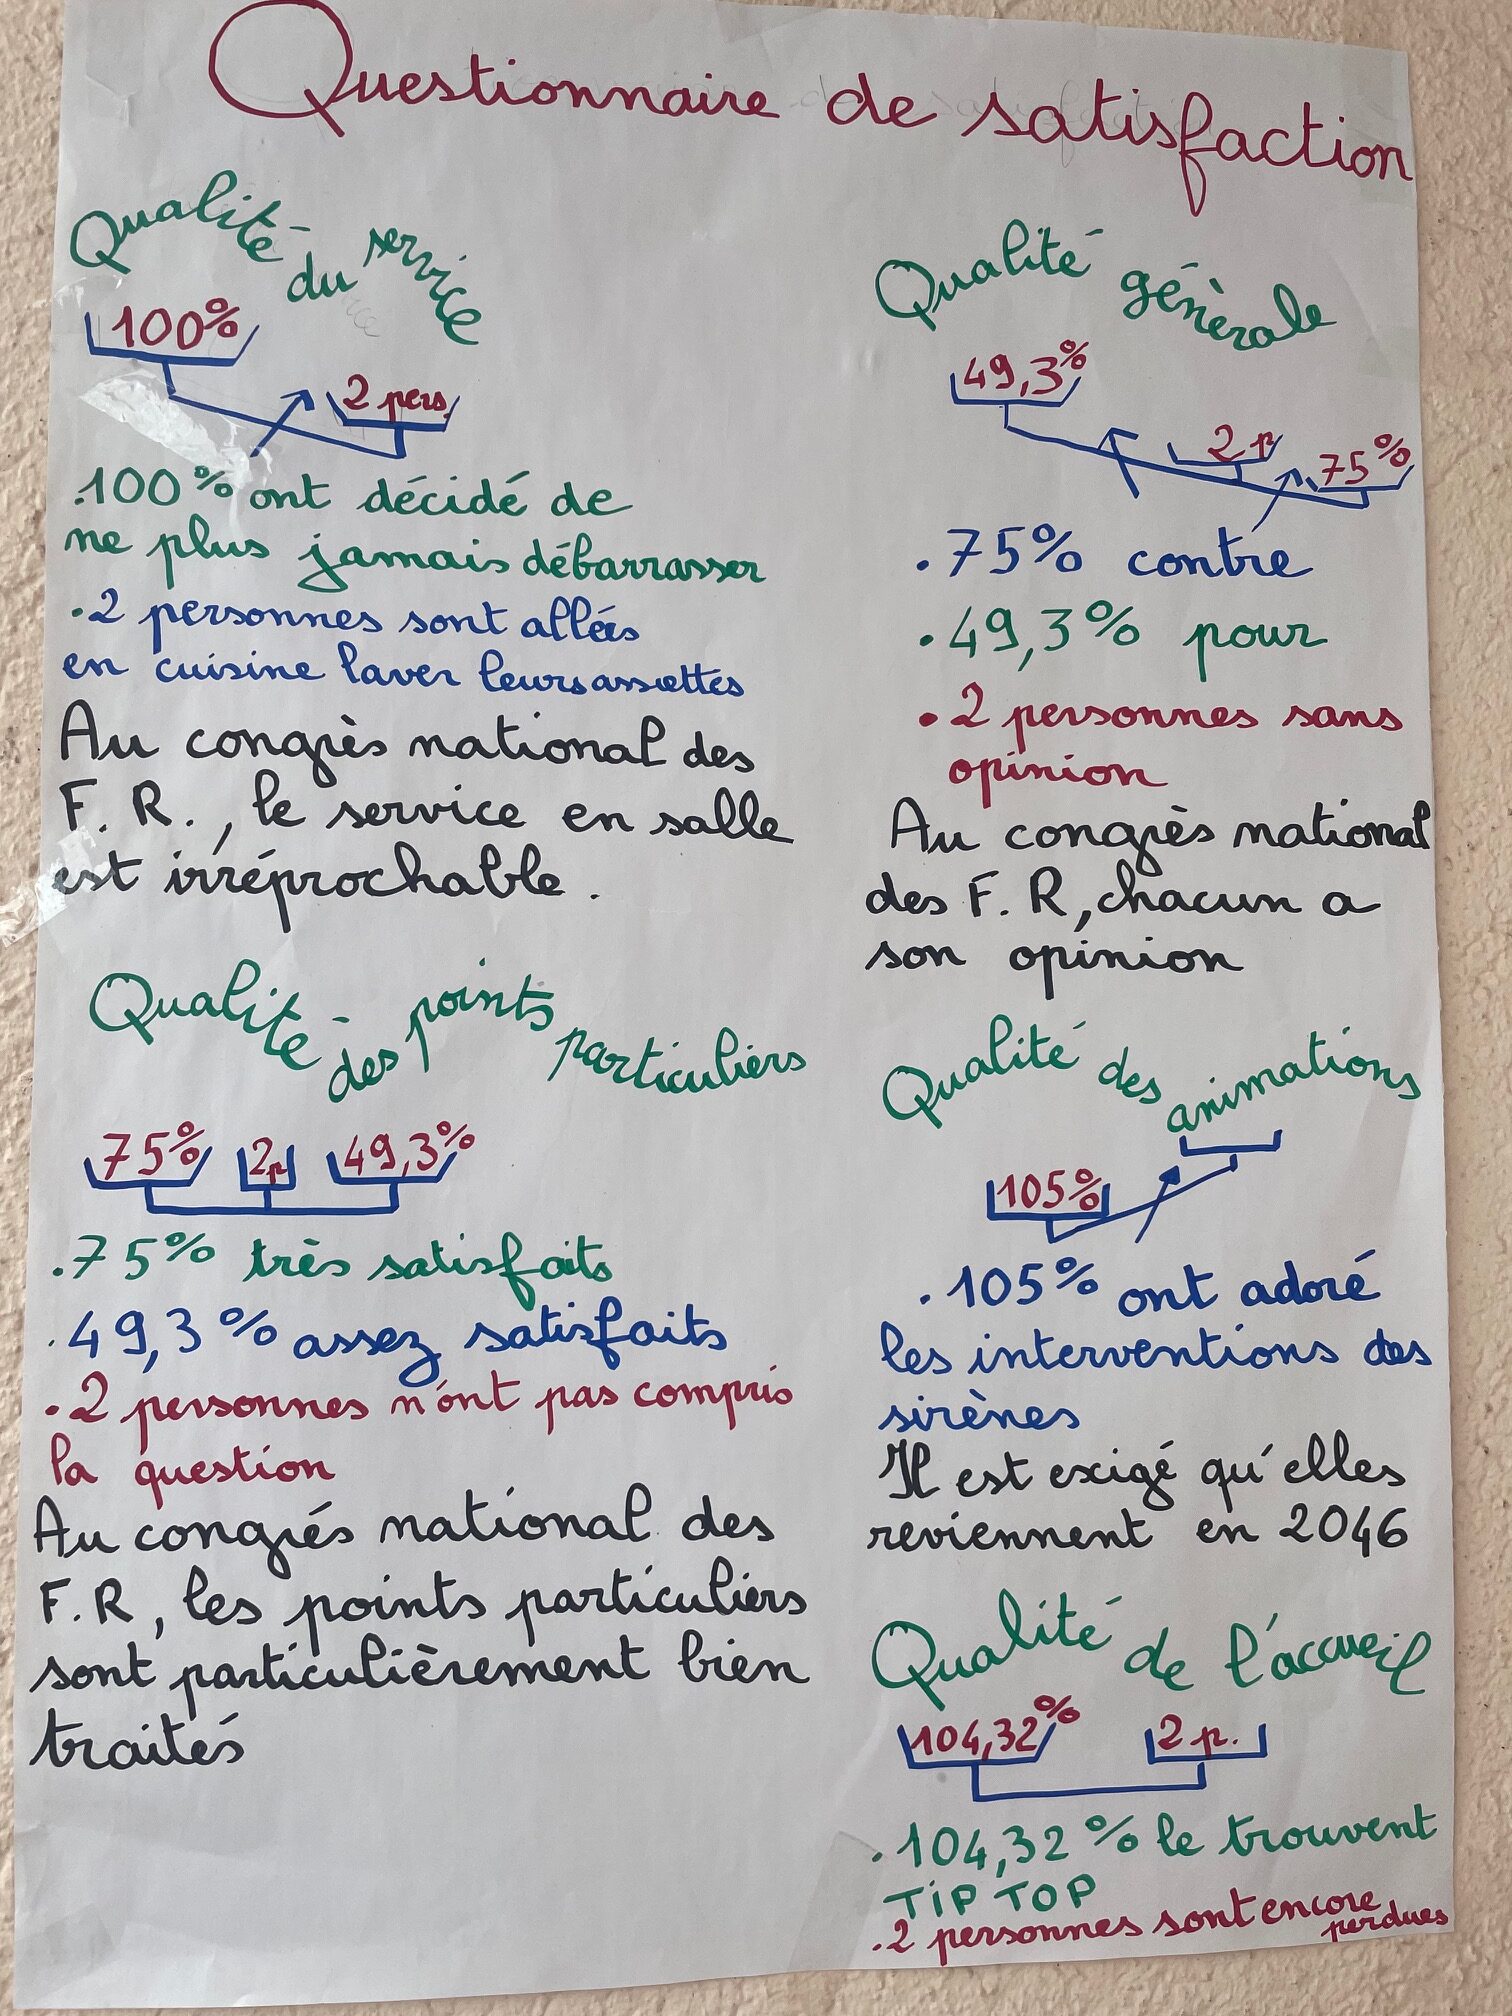 Questionnaire de satisfaction
Qualité du service
100%
2 pers.
.100% ont décidé de
ne plus jamais débarrasser
.2 personnes sont allées
en cuisine laver leurs assiettes
Au congrès national des
F. R., le service en salle
est irréprochable.
Qualité des points particuliers
75% 2p 49,3%
.75% très satisfaits
.49,3% assez satisfaits
.2 personnes n'ont pas compris
la question
Au congrés national des
F.R, les points particuliers
sont particulièrement bien
traités
Qualité générale
49,3%
2 p
75%
.75% contre
.49,3% pour
.2 personnes sans
opinion
Au congrès national
des F. R, chacun a
son opinion
Qualité des animations
105%
.105% ont adoré
les interventions des
sirènes
Il est exigé qu'elles
reviennent en 2046
Qualité de l'accueil
104,32% 2 p.
.104,32% le trouvent
TIP TOP
.2 personnes sont encore
perdues